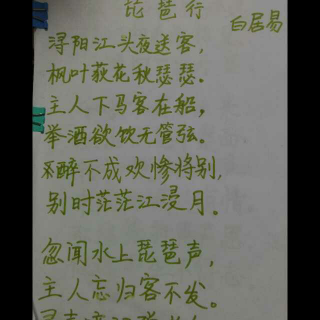 琵琶行
白居易
浔阳江头夜送客，
枫叶荻花秋瑟瑟。
主人下马客在船，
举酒欲饮无管弦。
醉不成欢惨将别，
别时茫茫江浸月。
忽闻水上琵琶声，
主人忘归客不发。